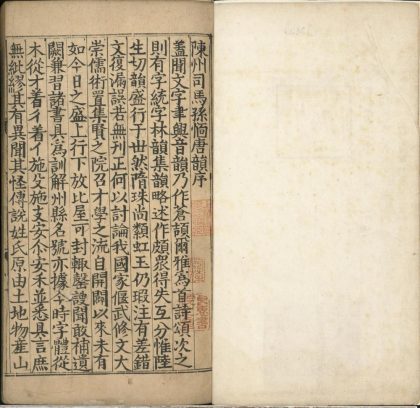 陳州司馬孫愐唐韻序
蓋聞文字聿興音韻乃作蒼頡爾雅為首詩頌次之
則有字統字林韻集韻略述作頗衆得失互分惟陸
生切韻盛行于世然隋珠尚纇虹玉仍瑕注有差錯
文復漏誤若無刋正何以討論我國家偃武修文大
崇儒術置集賢之院召才學之流自開闢以來未有
如今日之盛上行下效比屋可封輙罄謏聞敢補遺
闕兼習諸書具為訓解州縣名號亦據今時字體從
木從才著彳著亻施殳施攴安尒安禾並悉具言庶
無紕繆其有異聞奇怪傳說姓氏原由土地物產山